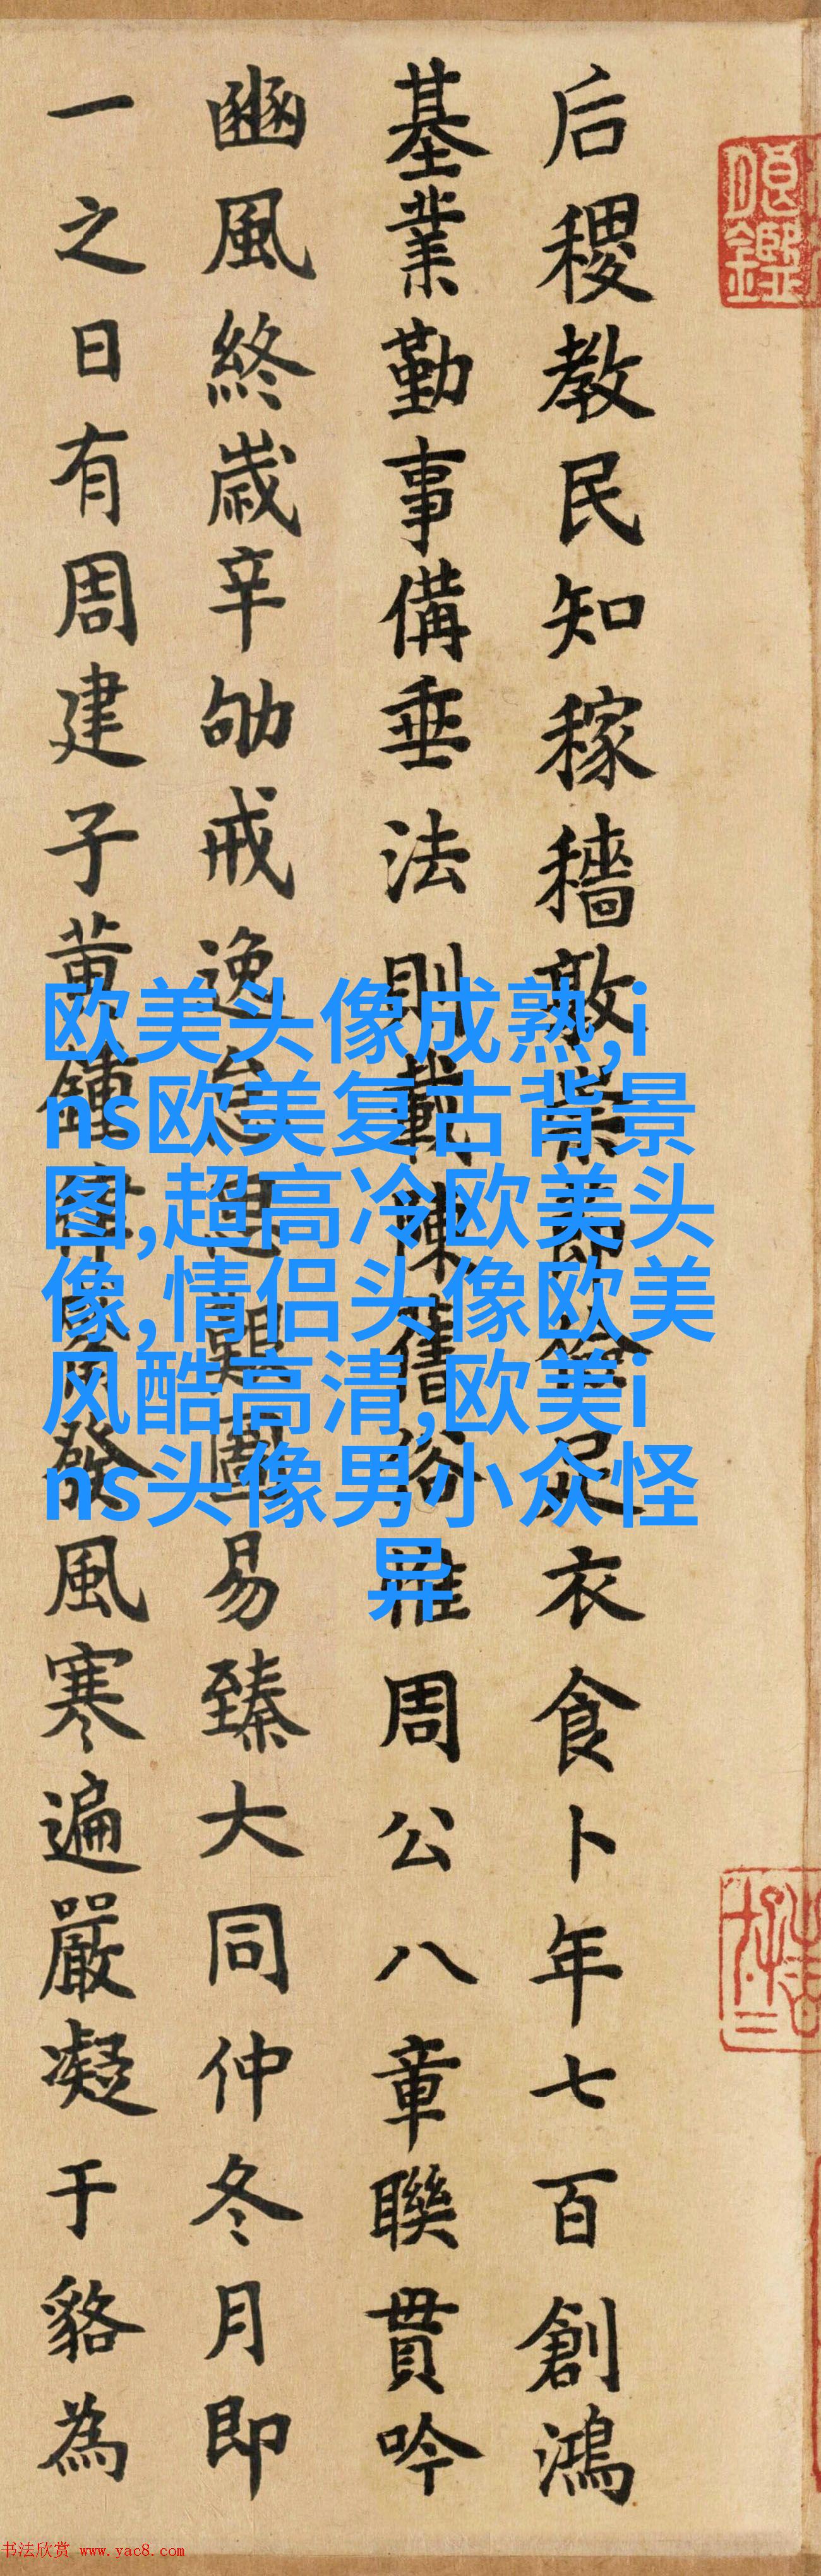 后稷教民知稼穡敦
衣食卜年七百創鴻
基業勤事備垂法則載陳舊俗
周公八章聯貫吟
豳風終歲辛劬戒逸
易臻大同仲冬月即
一之日有周建子黄鍾
發風寒遍嚴凝于貉為
欧美头像成熟,i
ns欧美复古背景
图,超高冷欧美头
像,情侣头像欧美
风酷高清,欧美i
ns头像男小众怪
异
书法欣赏 www.yac8.com